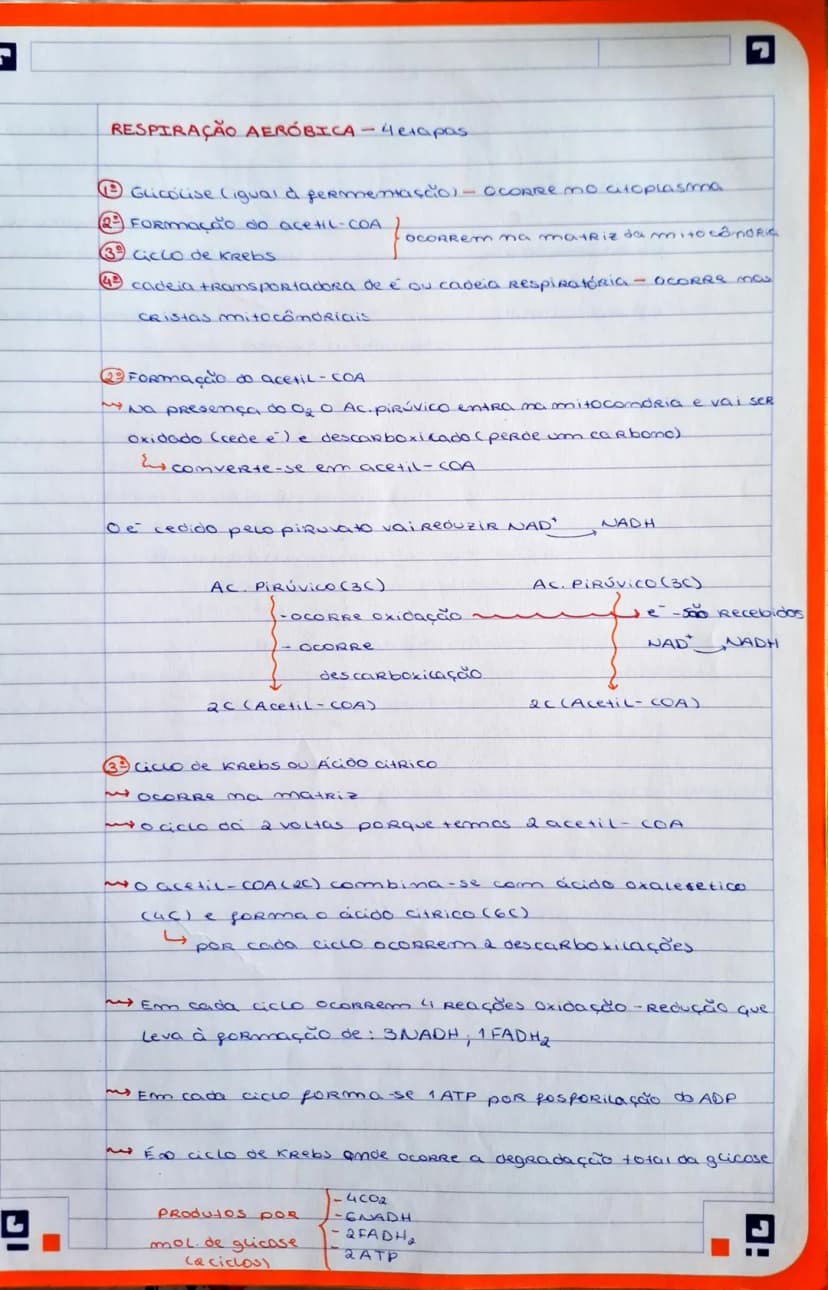 RESPIRAÇÃO AERÓBICA - 4 etapas
1º Glicólise (igual à fermentação) - ocorre no citoplasma
2º Formação do acetil-COA
3º Ciclo de Krebs
ocorrem na matriz da mitocôndria
4º cadeia transportadora de e⁻ ou cadeia respiratória - ocorre nas
cristas mitocôndriais
2º Formação do acetil-COA
→ Na presença do O₂ o Ac. pirúvico entra na mitocondria e vai ser
oxidado (cede e⁻) e descarboxicado (perde um carbono)
↳ converte-se em acetil-COA
O e⁻ cedido pelo piruvato vai reduzir NAD⁺ → NADH
Ac. Pirúvico (3C) Ac. Pirúvico (3C)
- ocorre oxidação → e⁻ - são recebidos
- ocorre NAD⁺ → NADH
descarboxicação
2C (Acetil-COA) 2C (Acetil-COA)
3º Ciclo de Krebs ou Ácido citrico
→ ocorre na matriz
→ o ciclo dá 2 voltas porque temos 2 acetil-COA
→ o acetil-COA (2C) combina-se com ácido oxalesetico
(4C) e forma o ácido citrico (6C)
↳ por cada ciclo ocorrem 2 descarboxilações
→ Em cada ciclo ocorrem 4 reações oxidação-redução que
leva à formação de: 3NADH, 1FADH₂
→ Em cada ciclo forma-se 1ATP por fosforilação do ADP
→ É no ciclo de Krebs onde ocorre a degradação total da glicose
Produtos por
mol. de glicose
(2 ciclos)
- 4CO₂
- 6NADH
- 2FADH₂
- 2ATP